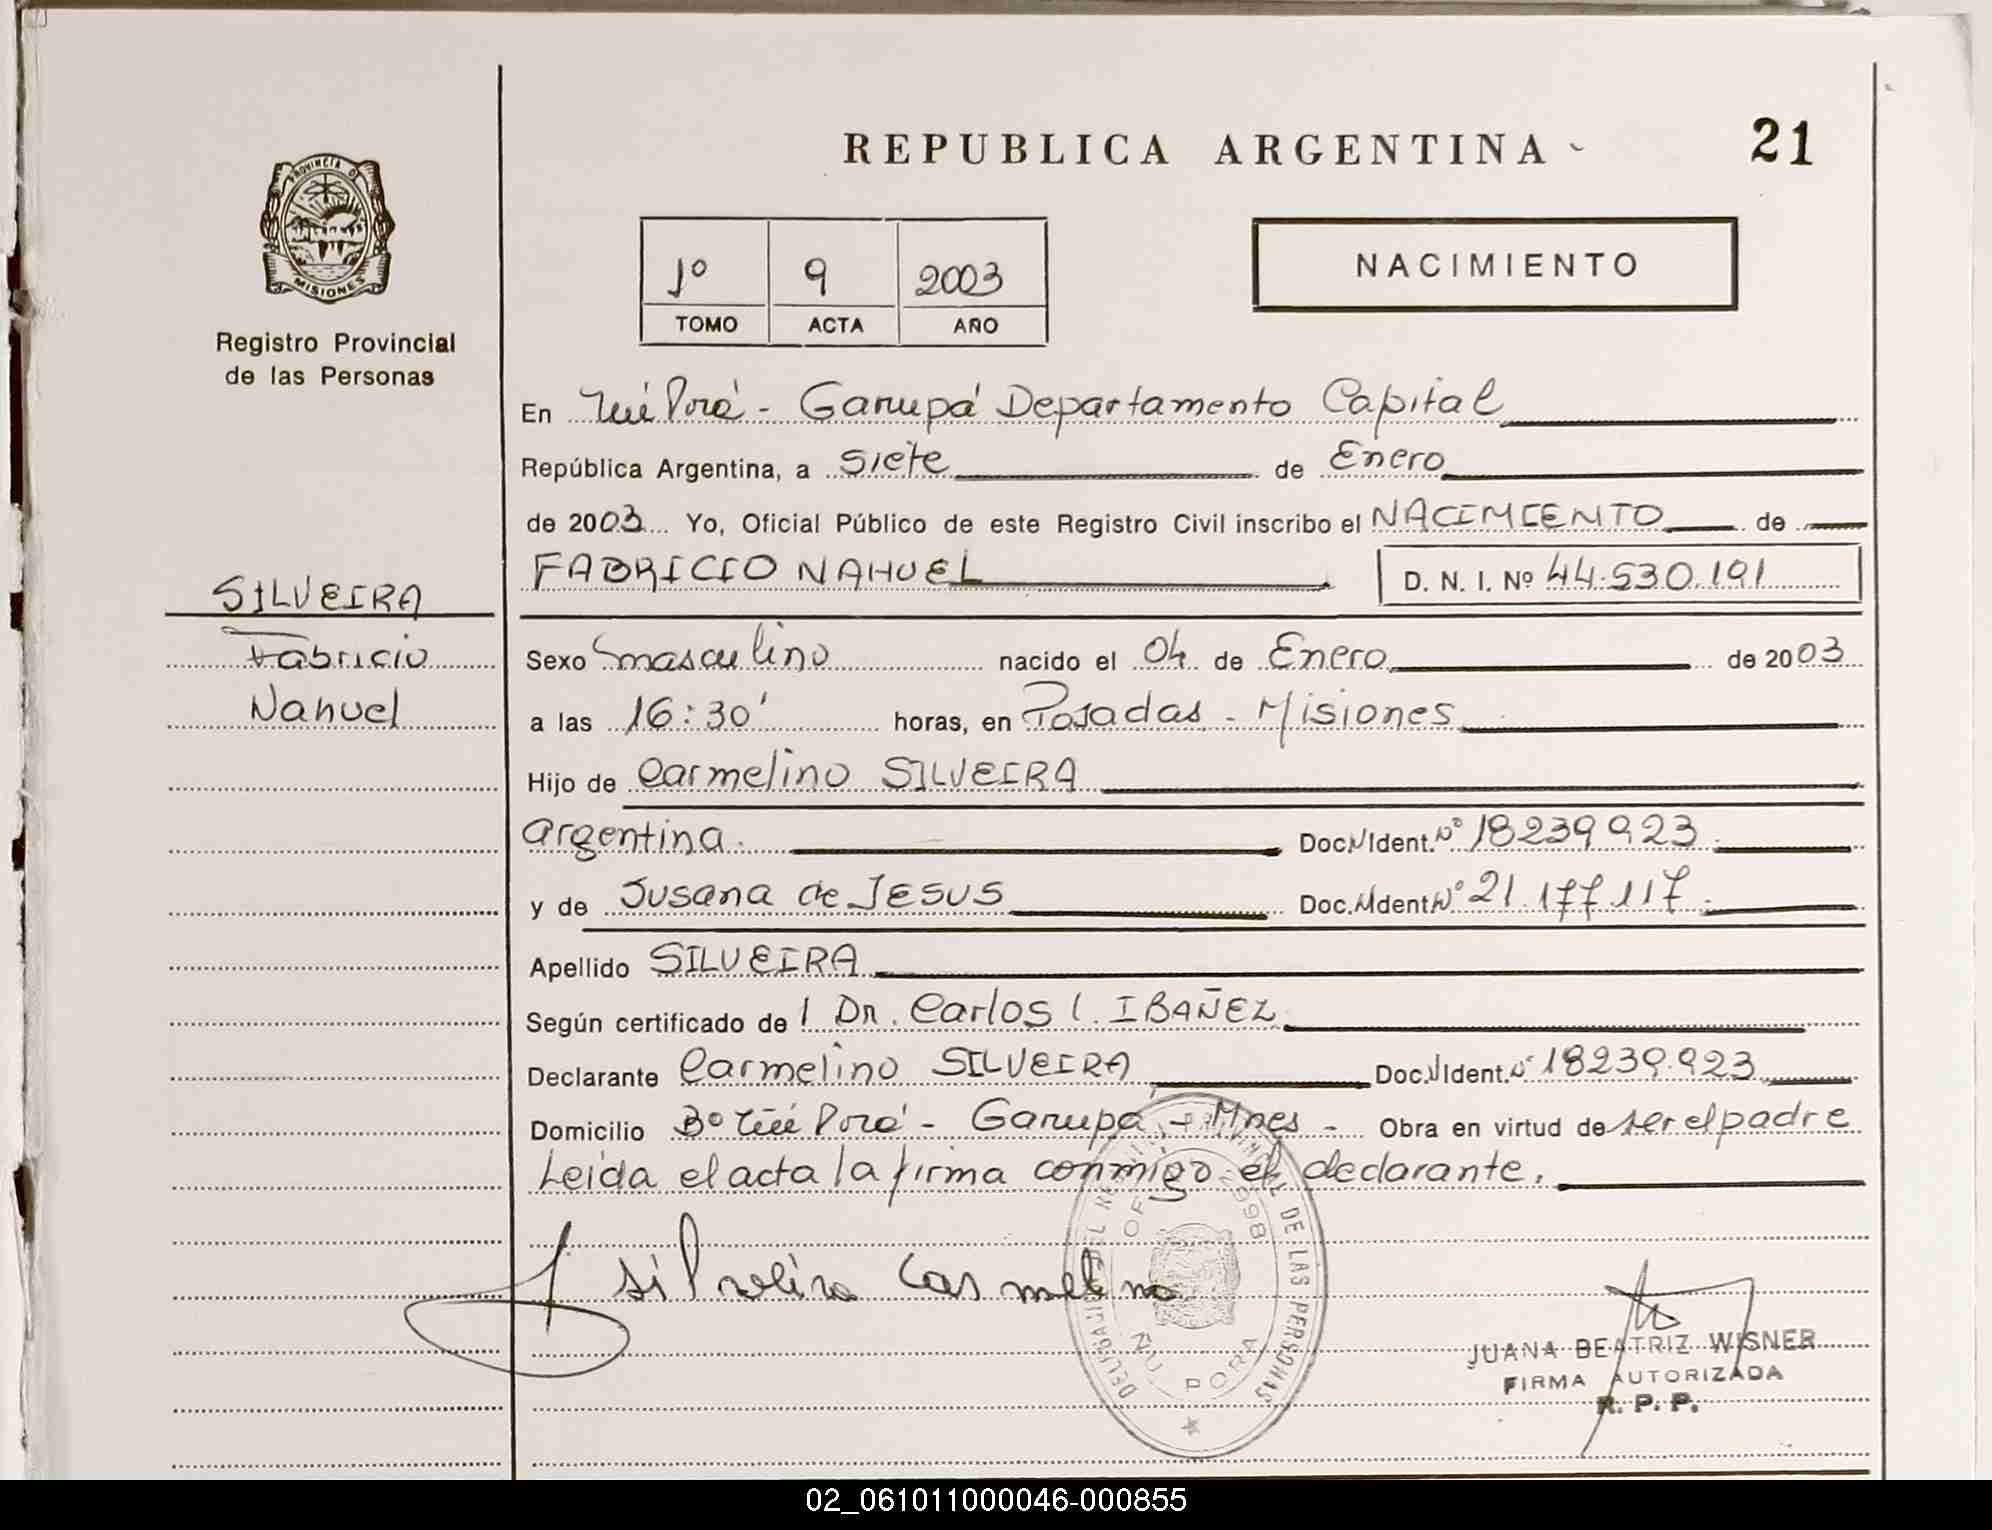 REPUBLICA ARGENTINA
21
PROVINCIA DE
MISIONES
Registro Provincial
de las Personas
1º 9 2003
TOMO ACTA AÑO
NACIMIENTO
En Ñú Porá - Garupá Departamento Capital
República Argentina, a Siete de Enero
de 2003 Yo, Oficial Público de este Registro Civil inscribo el NACIMIENTO de
FABRICIO NAHUEL D. N. I. Nº 44.530.191
SILVEIRA
Fabricio
Nahuel
Sexo masculino nacido el 04 de Enero de 2003
a las 16:30' horas, en Posadas - Misiones
Hijo de Carmelino SILVEIRA
argentina. Doc. Ident. Nº 18239923
y de Susana de JESUS Doc. Ident Nº 21.177.117
Apellido SILVEIRA
Según certificado de l Dr. Carlos l. IBAÑEZ
Declarante Carmelino SILVEIRA Doc. Ident. Nº 18239.923
Domicilio Bº Ñú Porá - Garupá - Mnes - Obra en virtud de ser el padre
Leída el acta la firma conmigo el declarante.
Silveira Carmelino
DE LAS PERSONAS
ÑU PORA
JUANA BEATRIZ WISNER
FIRMA AUTORIZADA
R. P. P.
02_061011000046-000855